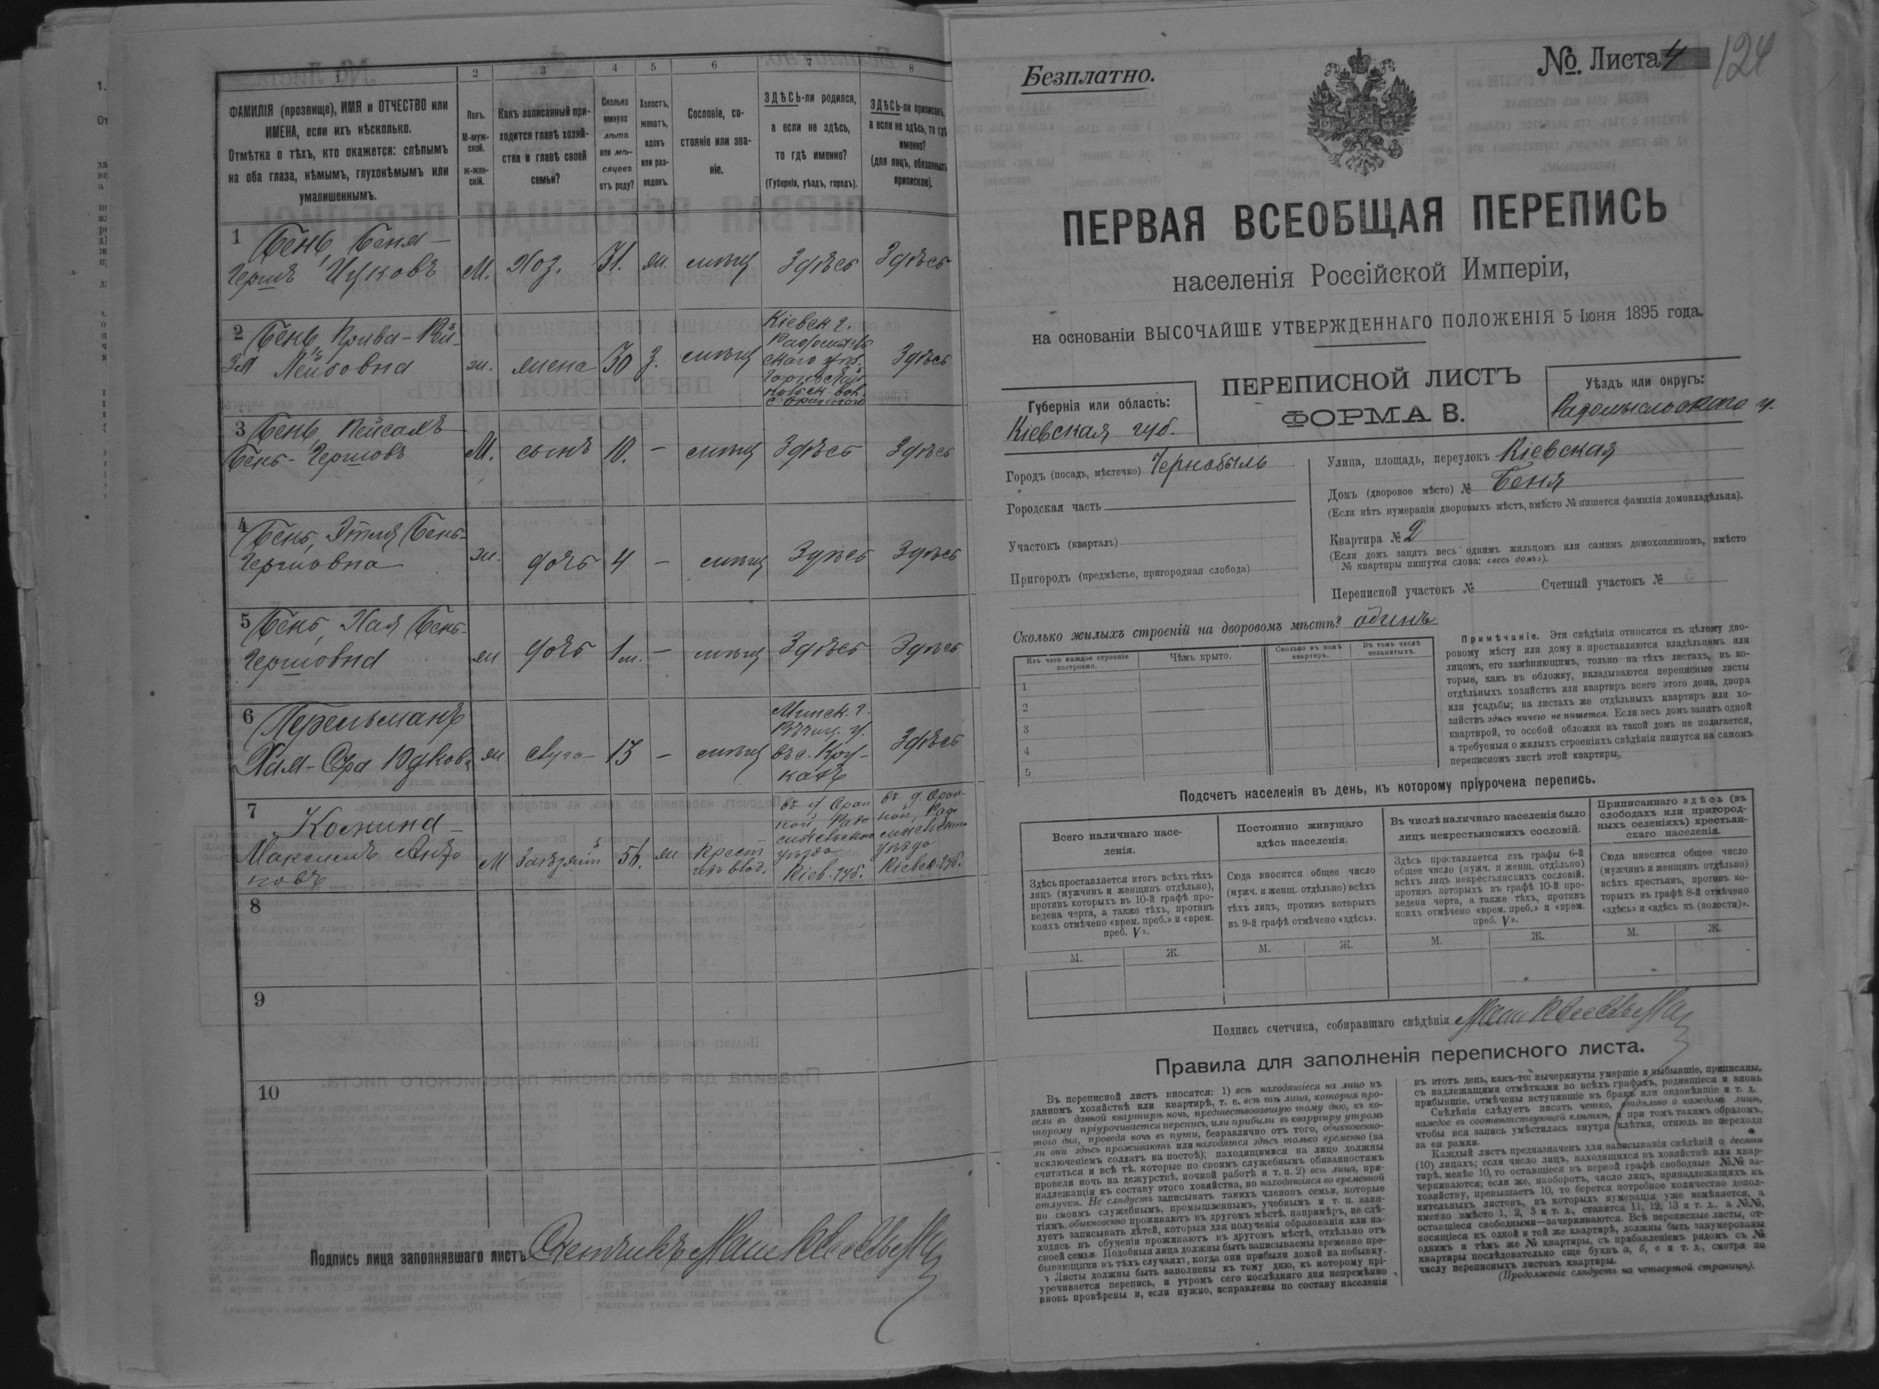 1 2 3 4 5 6 7 8
ФАМИЛІЯ (прозвище), ИМЯ и ОТЧЕСТВО или
ИМЕНА, если ихъ нѣсколько.
Отмѣтка о тѣхъ, кто окажется: слѣпымъ
на оба глаза, нѣмымъ, глухонѣмымъ или
умалишеннымъ.
Полъ.
М-муж-
ской.
ж-жен-
скій.
Какъ записанный при-
ходится главѣ хозяй-
ства и главѣ своей
семьи?
Сколько
минуло
лѣтъ
или мѣ-
сяцевъ
отъ роду?
Холостъ,
женатъ,
вдовъ
или раз-
веденъ.
Сословіе, со-
стояніе или зва-
ніе.
ЗДѢСЬ-ли родился,
а если не здѣсь,
то гдѣ именно?
(Губернія, уѣздъ, городъ).
ЗДѢСЬ-ли приписанъ,
а если не здѣсь, то гдѣ
именно?
(для лицъ, обязанныхъ
припискою).
1 Бень, Беня-
Гершъ Ицковъ М. Хоз. 31. ж. мѣщ Здѣсь Здѣсь
2 Бень, Крива-Рей-
зя Лейбовна ж. жена 30 з. мѣщ Кіевск г. Здѣсь
3 Бень, Пейсахъ
Бень-Гершовъ М. сынъ 10. — мѣщ Здѣсь Здѣсь
4 Бень, Этля Бень-
Гершовна ж. дочь 4 — мѣщ Здѣсь Здѣсь
5 Бень, Хая Бень-
Гершовна ж дочь 1 м. — мѣщ Здѣсь Здѣсь
6 Перельманъ
Хая-Сра Юдкова ж слуга 13 — мѣщ Минск. г. Здѣсь
7
Максимъ М 56. ж крест
уѣзда уѣзда
Кіев. губ. Кіевск. губ.
8
9
10
Подпись лица заполнявшаго листъ Счетчикъ
Безплатно.
№. Листа 4 124
ПЕРВАЯ ВСЕОБЩАЯ ПЕРЕПИСЬ
населенія Россійской Имперіи,
на основаніи ВЫСОЧАЙШЕ УТВЕРЖДЕННАГО ПОЛОЖЕНІЯ 5 Іюня 1895 года.
ПЕРЕПИСНОЙ ЛИСТЪ
ФОРМА В.
Губернія или область:
Кіевская губ.
Уѣздъ или округъ:
Радомысльскаго у.
Городъ (посадъ, мѣстечко) Чернобыль
Городская часть
Участокъ (кварталъ)
Пригородъ (предмѣстье, пригородная слобода)
Улица, площадь, переулокъ Кіевская
Домъ (дворовое мѣсто) № Беня
(Если нѣтъ нумераціи дворовыхъ мѣстъ, вмѣсто № пишется фамилія домовладѣльца).
Квартира № 2
(Если домъ занятъ весь однимъ жильцомъ или самимъ домохозяиномъ, вмѣсто
№ квартиры пишутся слова: «весь домъ»).
Переписной участокъ № Счетный участокъ №
Сколько жилыхъ строеній на дворовомъ мѣстѣ? одинъ
Изъ чего каждое строеніе
построено.
Чѣмъ крыто.
Сколько въ немъ
квартиръ.
Въ томъ числѣ
незанятыхъ.
1
2
3
4
5
Примѣчаніе. Эти свѣдѣнія относятся къ цѣлому дво-
ровому мѣсту или дому и проставляются владѣльцемъ или
лицомъ, его замѣняющимъ, только на тѣхъ листахъ, въ ко-
торые, какъ въ обложку, вкладываются переписные листы
отдѣльныхъ хозяйствъ или квартиръ всего этого дома, двора
или усадьбы; на листахъ же отдѣльныхъ квартиръ или хо-
зяйствъ здѣсь ничего не пишется. Если весь домъ занятъ одной
квартирой, то особой обложки на такой домъ не полагается,
а требуемыя о жилыхъ строеніяхъ свѣдѣнія пишутся на самомъ
переписномъ листѣ этой квартиры.
Подсчетъ населенія въ день, къ которому пріурочена перепись.
Всего наличнаго насе-
ленія.
Здѣсь проставляется итогъ всѣхъ тѣхъ
лицъ (мужчинъ и женщинъ отдѣльно),
противъ которыхъ въ 10-й графѣ про-
ведена черта, а также тѣхъ, противъ
коихъ отмѣчено «врем. преб.» и «врем.
преб. V».
Постоянно живущаго
здѣсь населенія.
Сюда вносится общее число
(мужч. и женщ. отдѣльно) всѣхъ
тѣхъ лицъ, противъ которыхъ
въ 9-й графѣ отмѣчено «здѣсь».
Въ числѣ наличнаго населенія было
лицъ некрестьянскихъ сословій.
Здѣсь проставляется изъ графы 6-й
общее число (мужч. и женщ. отдѣльно)
всѣхъ лицъ некрестьянскихъ сословій,
противъ которыхъ въ графѣ 10-й про-
ведена черта, а также тѣхъ, противъ
коихъ отмѣчено «врем. преб.» и «врем.
преб. V».
Приписаннаго здѣсь (въ
слободахъ или пригород-
ныхъ селеніяхъ) крестьян-
скаго населенія.
Сюда вносится общее число
(мужчинъ и женщинъ отдѣльно)
всѣхъ крестьянъ, противъ ко-
торыхъ въ графѣ 8-й отмѣчено
«здѣсь» и «здѣсь къ (волости)».
М. Ж. М. Ж. М. Ж. М. Ж.
Подпись счетчика, собиравшаго свѣдѣнія
Правила для заполненія переписного листа.
Въ переписной листъ вносятся: 1) всѣ находящіеся на лицо въ
данномъ хозяйствѣ или квартирѣ, т. е. всѣ тѣ лица, которыя про-
вели въ данной квартирѣ ночь, предшествовавшую тому дню, къ ко-
торому пріурочивается перепись, или прибыли въ квартиру утромъ
того дня, проведя ночь въ пути, безразлично отъ того, обыкновенно-
ли они здѣсь проживаютъ или находятся здѣсь только временно (за
исключеніемъ солдатъ на постоѣ); находящимися на лицо должны
считаться и всѣ тѣ, которые по своимъ служебнымъ обязанностямъ
провели ночь на дежурствѣ, ночной работѣ и т. п. 2) всѣ лица, при-
надлежащія къ составу этого хозяйства, но находящіяся во временной
отлучкѣ. Не слѣдуетъ записывать такихъ членовъ семьи, которые
по своимъ служебнымъ, промышленнымъ, учебнымъ и т. п. заня-
тіямъ, обыкновенно проживаютъ въ другомъ мѣстѣ, напримѣръ, не слѣ-
дуетъ записывать дѣтей, которыя для полученія образованія или на-
ходясь въ обученіи проживаютъ въ другомъ мѣстѣ, отдѣльно отъ
своей семьи. Подобныя лица должны быть записываемы временно пре-
бывающими въ тѣхъ случаяхъ, когда они прибыли домой на побывку.
Листы должны быть заполнены къ тому дню, къ которому прі-
урочивается перепись, и утромъ сего послѣдняго дня непремѣнно
вновь провѣрены и, если нужно, исправлены по составу населенія
въ этотъ день, какъ-то: вычеркнуты умершіе и выбывшіе, приписаны,
съ надлежащими отмѣтками во всѣхъ графахъ, родившіеся и вновь
прибывшіе, отмѣчены вступившіе въ бракъ или овдовѣвшіе и т. д.
Свѣдѣнія слѣдуетъ писать четко, отдѣльно о каждомъ лицѣ,
каждое въ соотвѣтствующей клѣткѣ, и при томъ такимъ образомъ,
чтобы вся запись умѣстилась внутри клѣтки, отнюдь не переходя
за ея рамки.
Каждый листъ предназначенъ для записыванія свѣдѣній о десяти
(10) лицахъ; если число лицъ, находящихся въ хозяйствѣ или квар-
тирѣ, менѣе 10, то оставшіеся въ первой графѣ свободные №№ за-
черкиваются; если же, наоборотъ, число лицъ, принадлежащихъ къ
хозяйству, превышаетъ 10, то берется потребное количество допол-
нительныхъ листовъ, въ которыхъ нумерація уже измѣняется, а
именно вмѣсто 1, 2, 3 и т. д., ставится 11, 12, 13 и т. д., а №№,
оставшіеся свободными—зачеркиваются. Всѣ переписные листы, от-
носящіеся къ одной и той же квартирѣ, должны быть занумерованы
однимъ и тѣмъ же № квартиры, съ прибавленіемъ рядомъ съ №
квартиры послѣдовательно еще буквъ а, б, в и т. д., смотря по
числу переписныхъ листовъ квартиры.
(Продолженіе слѣдуетъ на четвертой страницѣ).